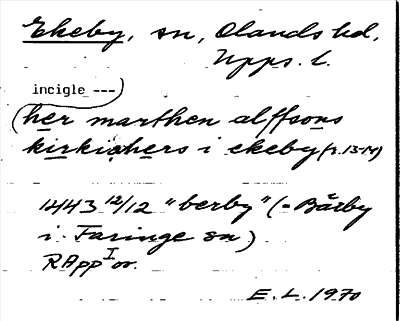 Ekeby, sn, Olands hd,
Upps. l.
incigle ---
(her marthen alffsons
kirkiohers i ekeby (r. 13-14)
1443 12/12 "berby" (= Bärby
i Faringe sn)
RApp I or.
E. L. 1970